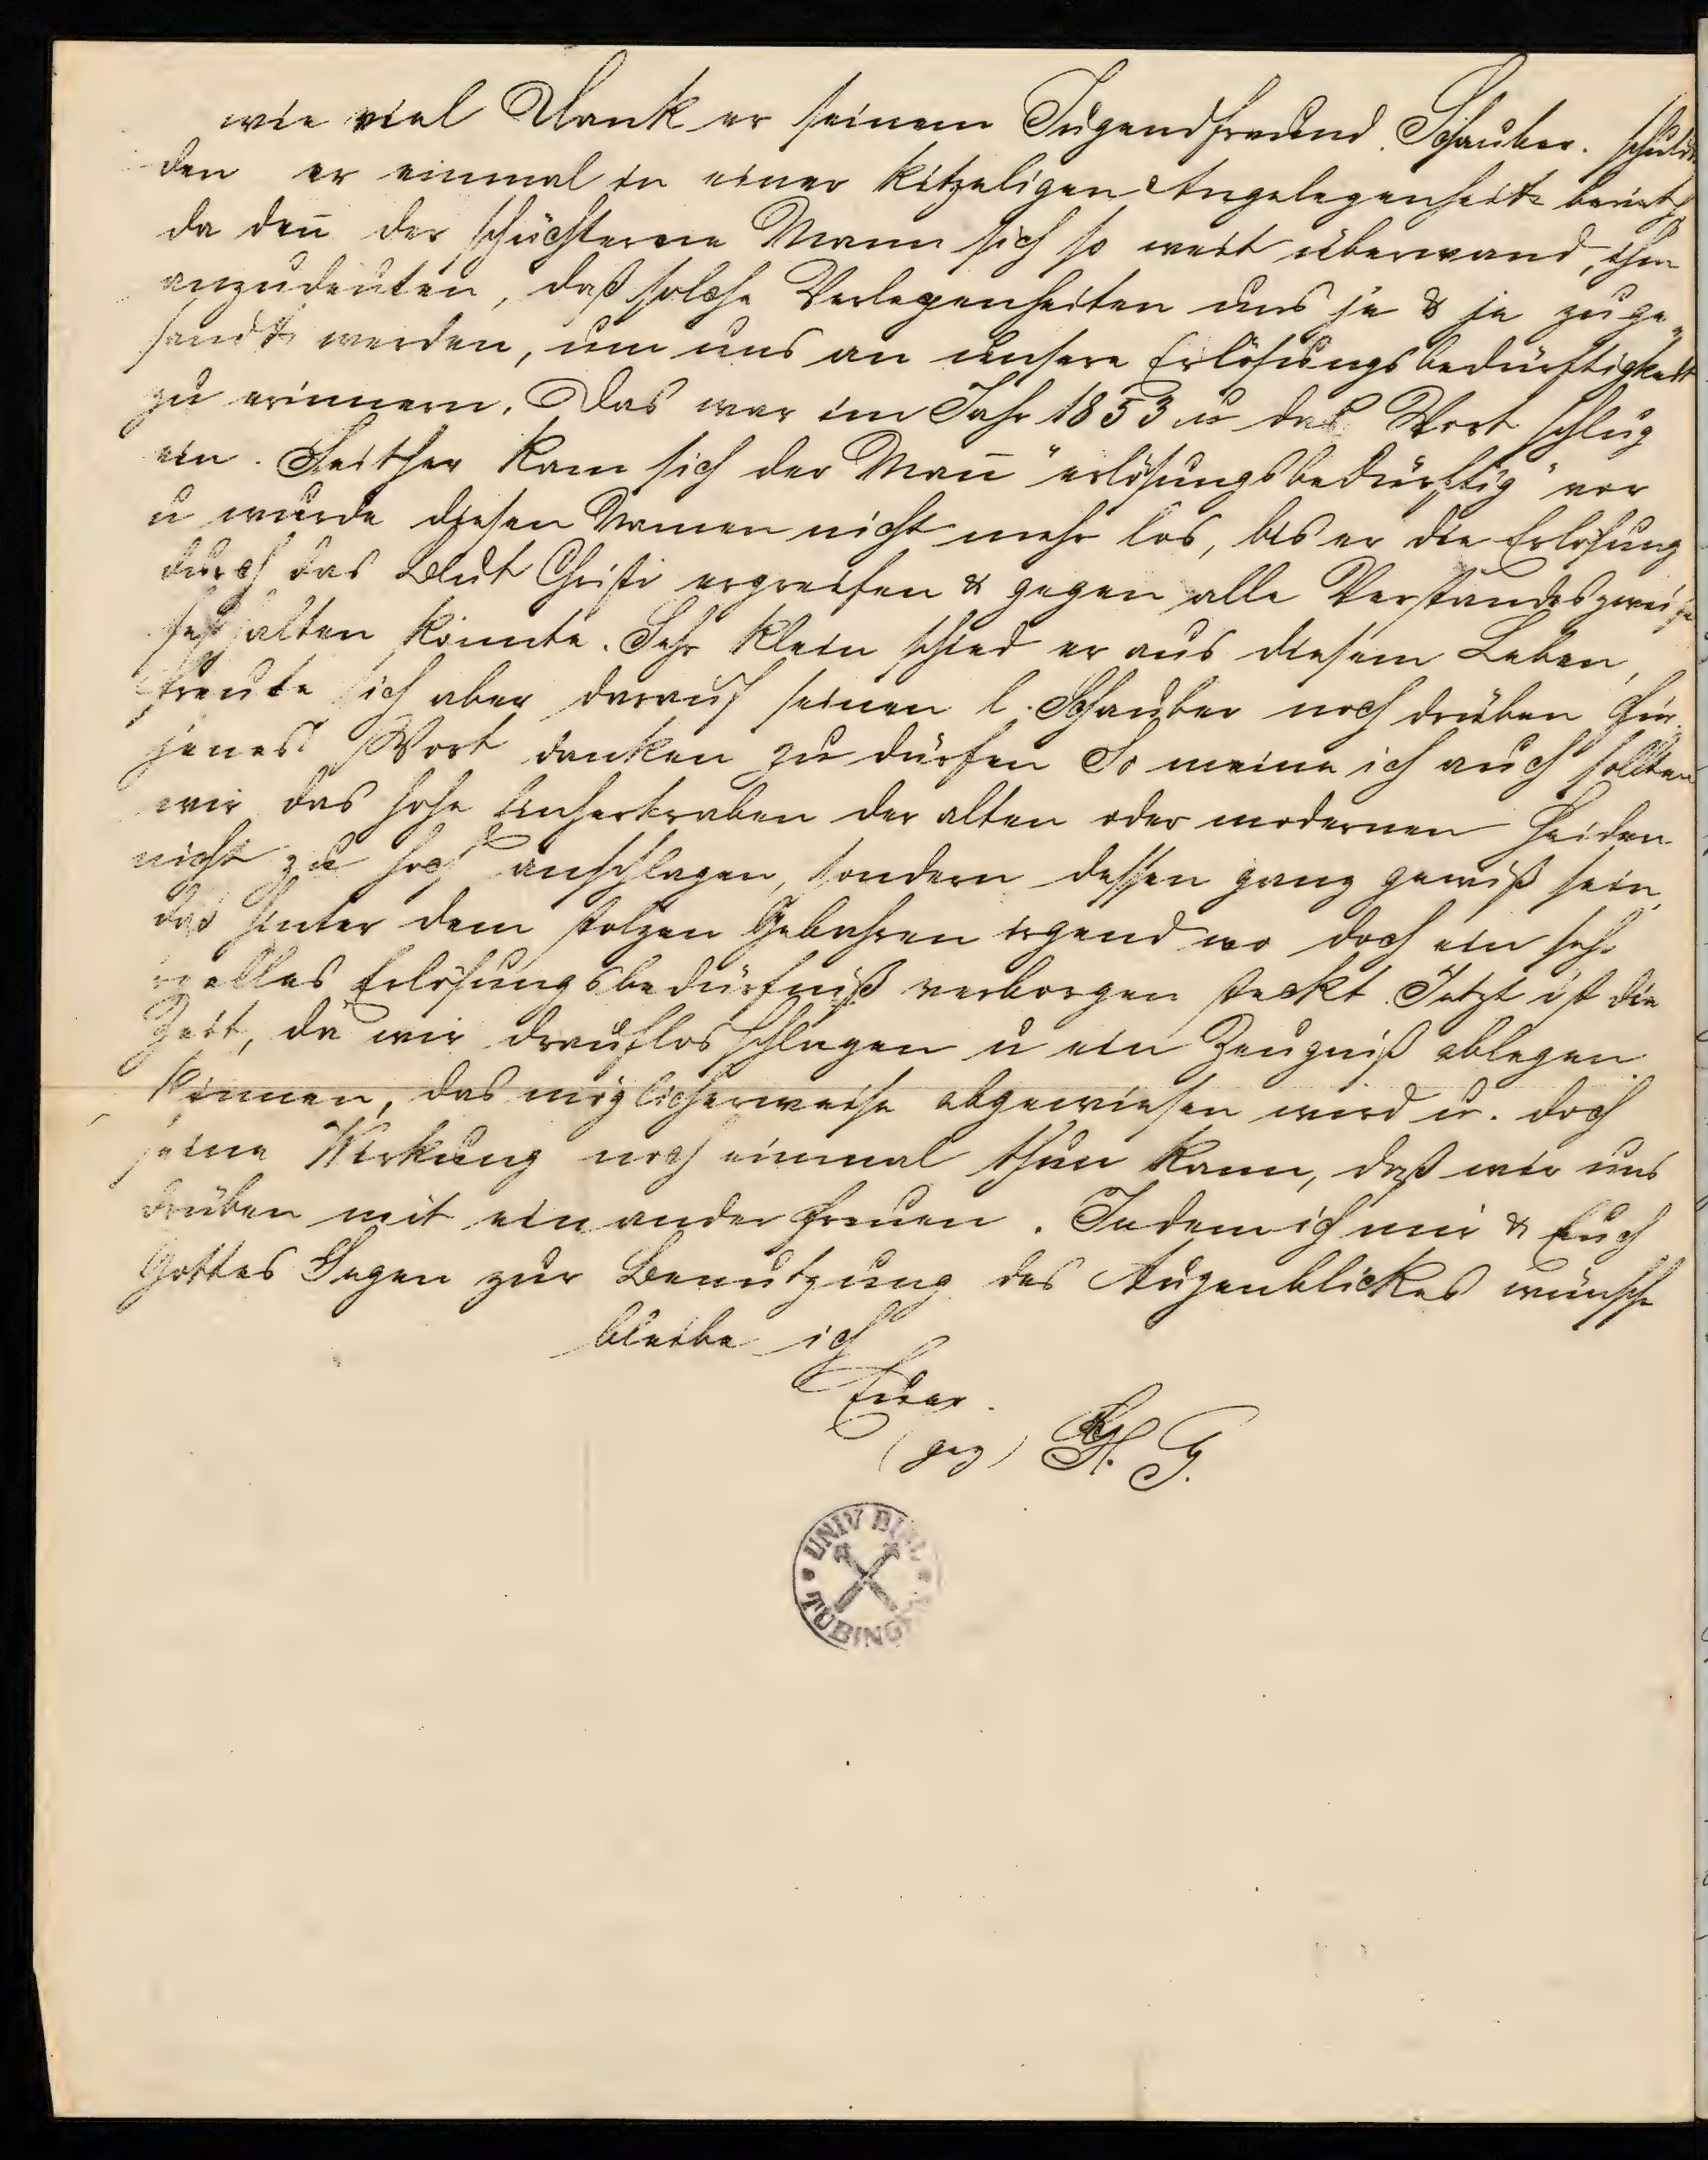 wie viel Dank er seinem Jugendfreund Schauber. schulde
den er einmal in einer kitzeligen Angelegenheit berieth
da den̄ der schüchterne Mann sich so weit überwand, ihm
anzudeuten, daß solche Verlegenheiten uns je & je zuge„
sandt werden, um uns an unsere Erlösungsbedürftigkeit
zu erinnern. Das war im Jahr 1853 u das Wort schlug
ein. Seither kam sich der Man̄ "erlösungsbedürftig" vor
u wurde diesen Namen nicht mehr los, bis er die Erlösung
durch das Blut Christi ergreifen & gegen alle Verstandeszweifel
festhalten konnte. Sehr klein schied er aus diesem Leben,
freute sich aber darauf seinen l. Schauber noch drüben für
jenes Wort danken zu dürfen So meine ich auch sollten
wir das hohe Einhertraben der alten oder modernen Heiden
nicht zu hoch anschlagen, sondern dessen ganz gewiß sein,
daß hinter dem stolzen Gebahren irgend wo doch ein sehr
reelles Erlösungsbedürfniß verborgen steckt. Jetzt ist die
Zeit, da wir drauflosschlagen u ein Zeugniß ablegen
können, das möglicherweise abgewiesen wird u. doch
seine Wirkung noch einmal thun kann, daß wir uns
drüben mit einander freuen. Indem ich mir & Euch
Gottes Segen zur Benutzung des Augenblickes wünsche
bleibe ich
Euer.
(gez) H. G.
UNIV BIBL
TÜBINGEN